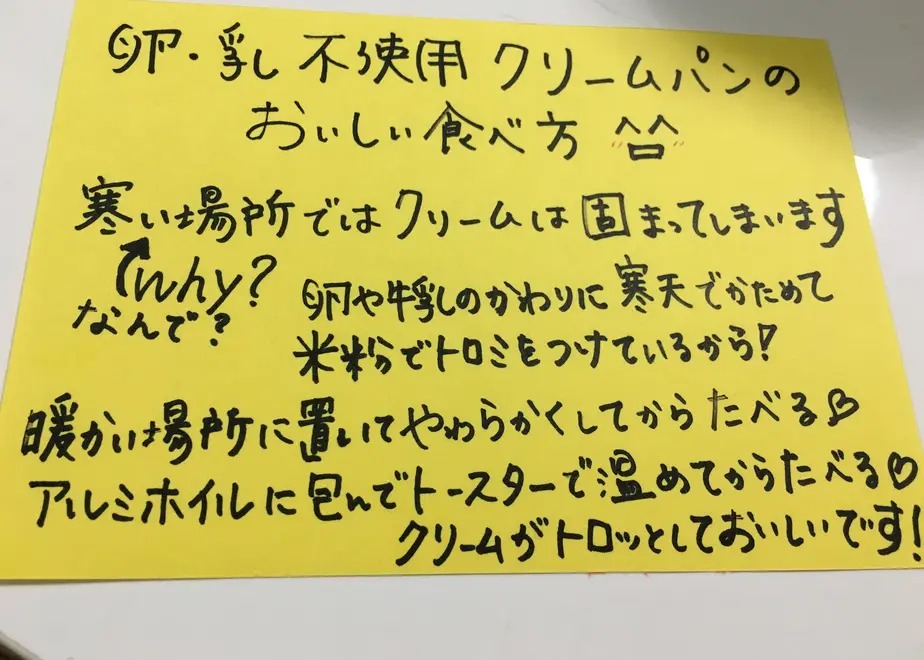 卵・乳 不使用 クリームパンの
おいしい食べ方
寒い場所ではクリームは固まってしまいます
why?
なんで?
卵や牛乳のかわりに寒天でかためて
米粉でトロミをつけているから!
暖かい場所に置いてやわらかくしてからたべる♡
アルミホイルに包んでトースターで温めてからたべる♡
クリームがトロッとしておいしいです!